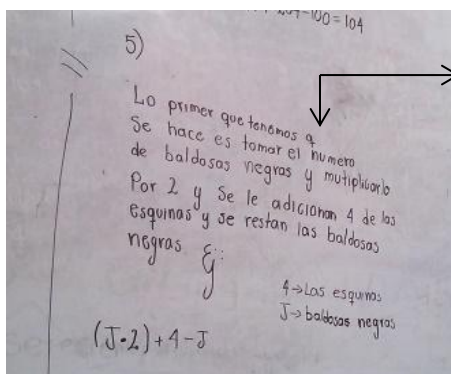 204-100=104
5)
Lo primer que tenemos q
Se hace es tomar el numero
de baldosas negras y mutiplicarlo
Por 2 y se le adicionan 4 de las
esquinas y se restan las baldosas
negras
4→Las esquinas
J→baldosas negras
(J•2)+4-J